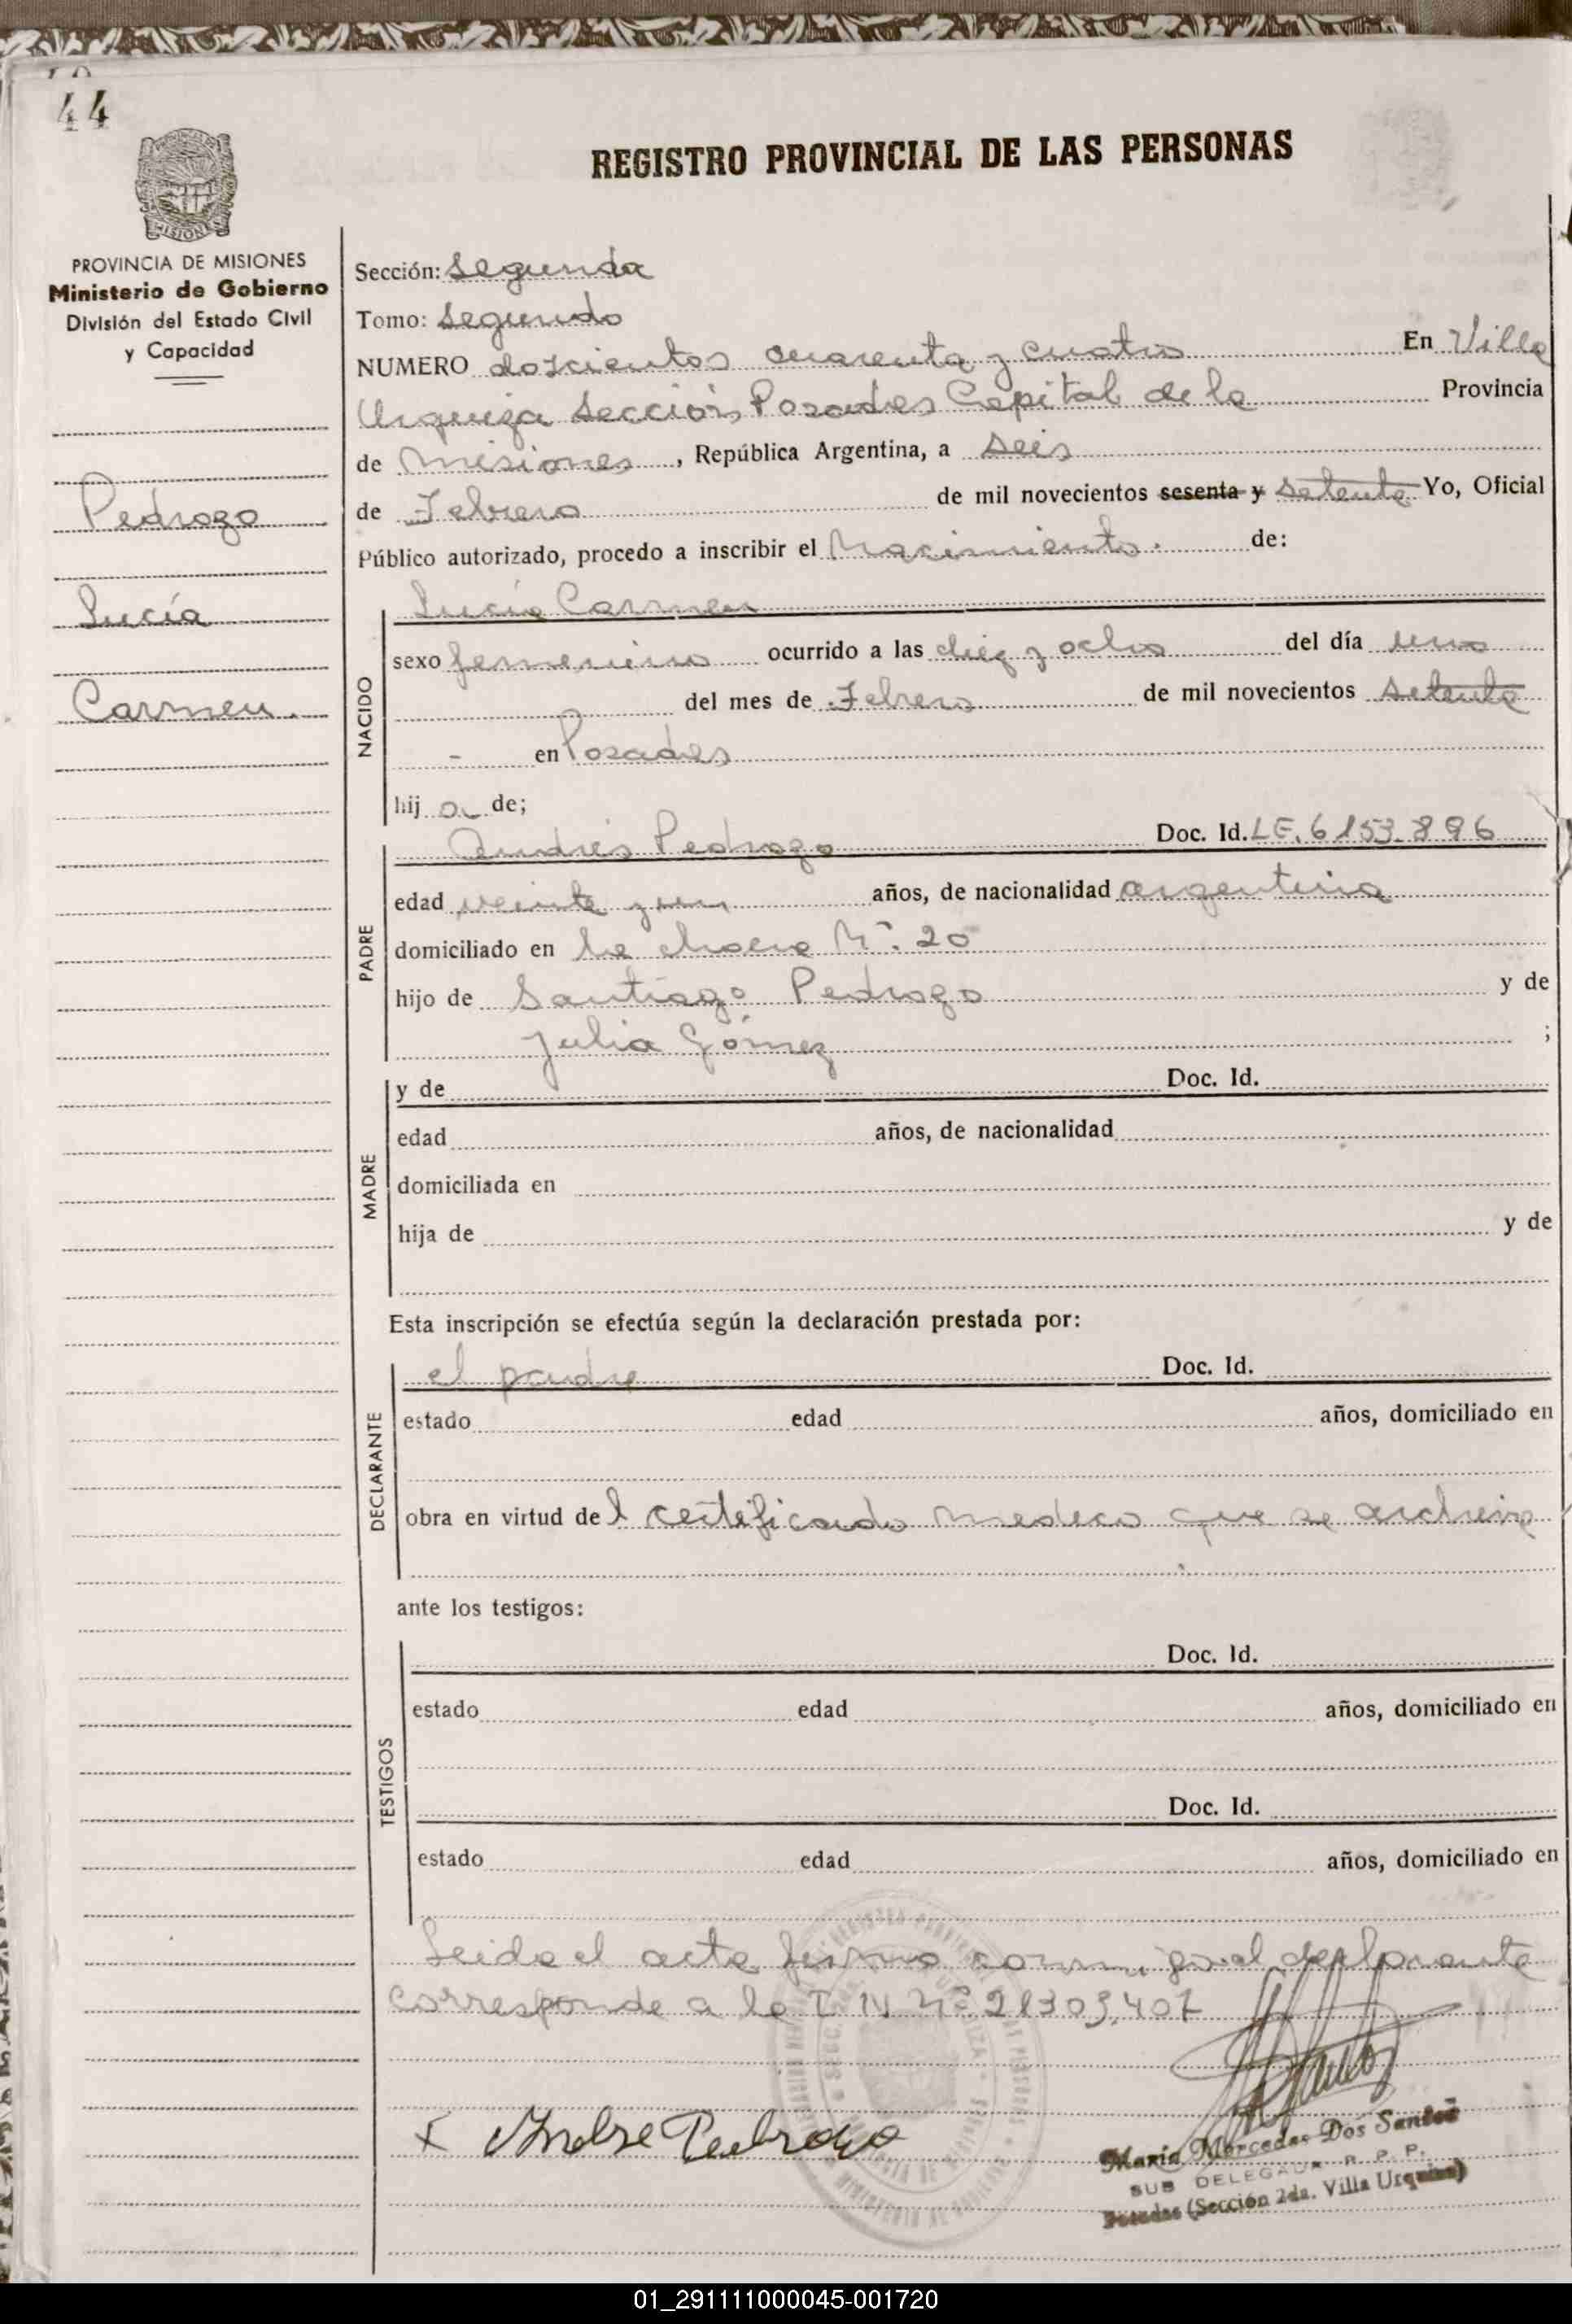 44
REGISTRO PROVINCIAL DE LAS PERSONAS
MISIONES
PROVINCIA DE MISIONES
Ministerio de Gobierno
División del Estado Civil
y Capacidad
Pedrozo
Lucía
Carmen.
Sección: Segunda
Tomo: Segundo
NUMERO doscientos cuarenta y cuatro En Villa
Urquiza Sección Posadas Capital de la Provincia
de Misiones, República Argentina, a Seis
de Febrero de mil novecientos sesenta y Setenta Yo, Oficial
Público autorizado, procedo a inscribir el Nacimiento. de:
Lucía Carmen
NACIDO
sexo femenino ocurrido a las diez y ocho del día uno
del mes de Febrero de mil novecientos Setenta
- en Posadas
hij a de;
PADRE
Andrés Pedrozo Doc. Id. LE. 6153.896
edad veinte y un años, de nacionalidad argentina
domiciliado en La chacra N°. 20
hijo de Santiago Pedrozo y de
Julia Gómez ;
MADRE
y de Doc. Id.
edad años, de nacionalidad
domiciliada en
hija de y de
Esta inscripción se efectúa según la declaración prestada por:
DECLARANTE
el padre Doc. Id.
estado edad años, domiciliado en
obra en virtud del certificado medico que se archiva
ante los testigos:
TESTIGOS
Doc. Id.
estado edad años, domiciliado en
Doc. Id.
estado edad años, domiciliado en
Leida el acta firma conmigo el declarante
Corresponde a la L N N° 21303.407
x Andre Pedrozo
María Mercedes Dos Santos
SUB DELEGADA R. P. P.
Posadas (Sección 2da. Villa Urquiza)
01_291111000045-001720